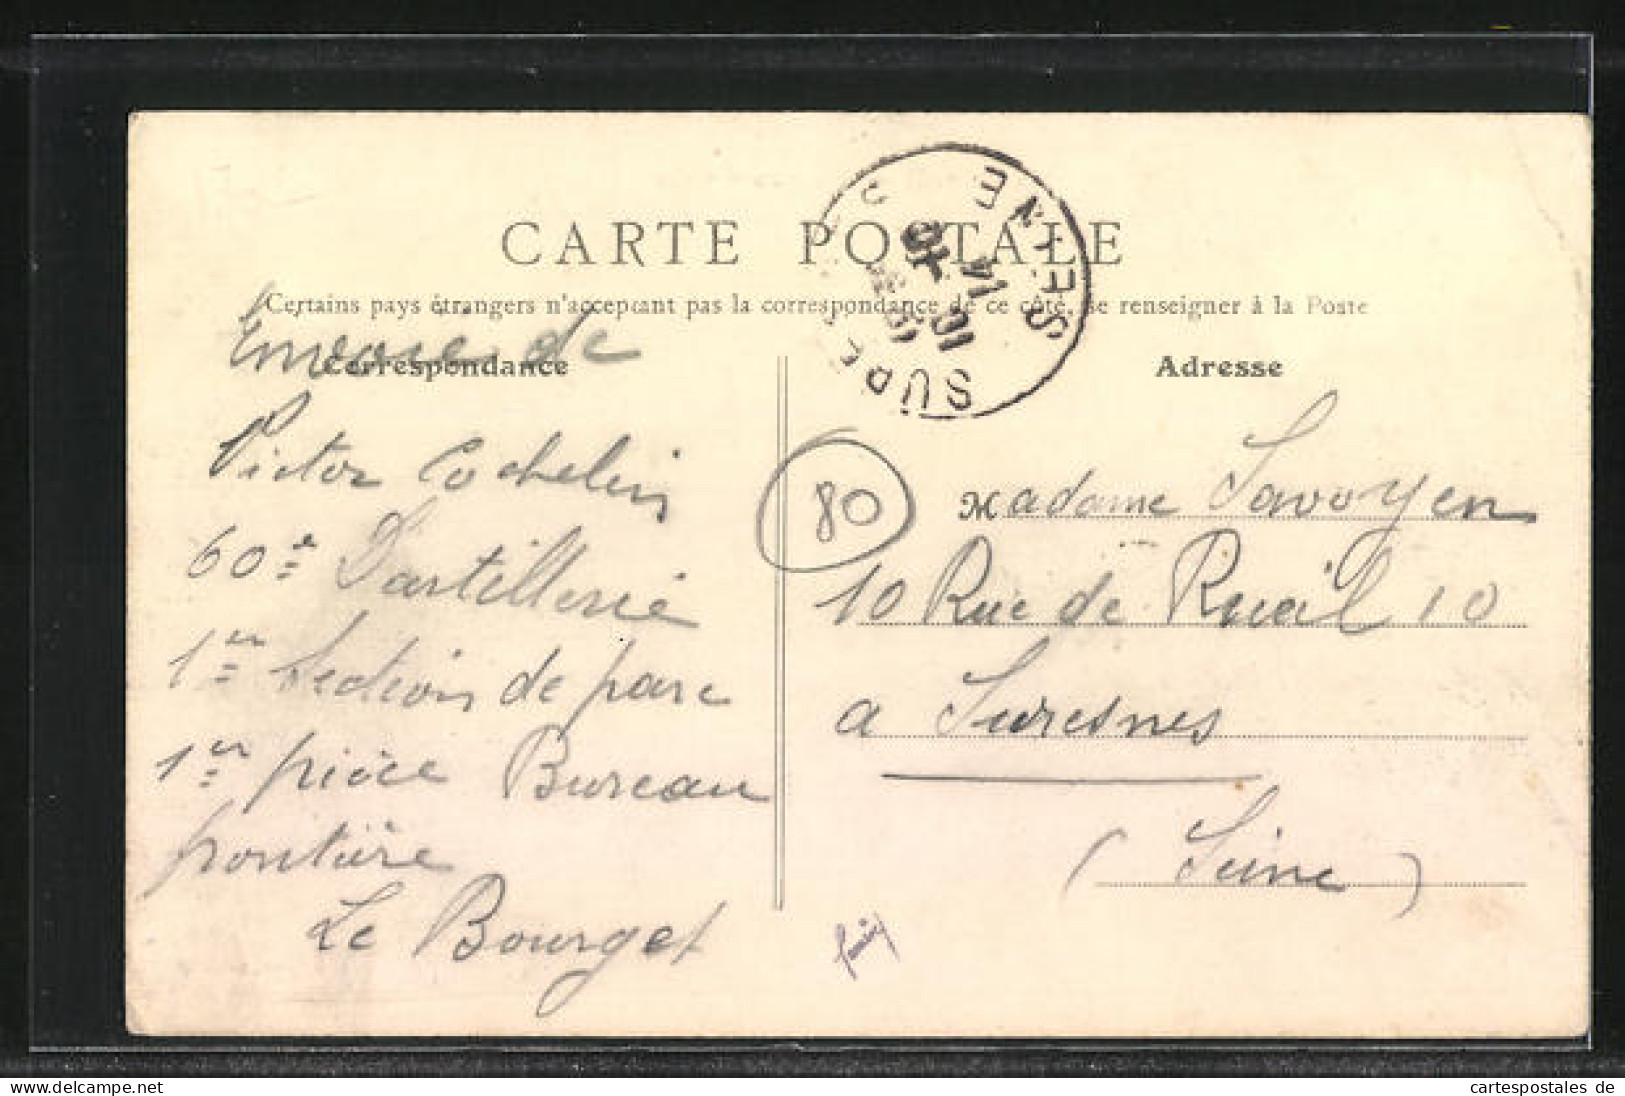 CARTE POSTALE
Certains pays étrangers n'acceptant pas la correspondance de ce côté, se renseigner à la Poste
Correspondance
Envoie de
Victor Cochelin
60e D'artillerie
1er Section de parc
1er pièce Bureau
frontière
Le Bourget
80
SURESNES
SEINE
Adresse
Madame Savoyen
10 Rue de Rueil 10
a Suresnes
(Seine)
cartespostales.net
cartespostales de